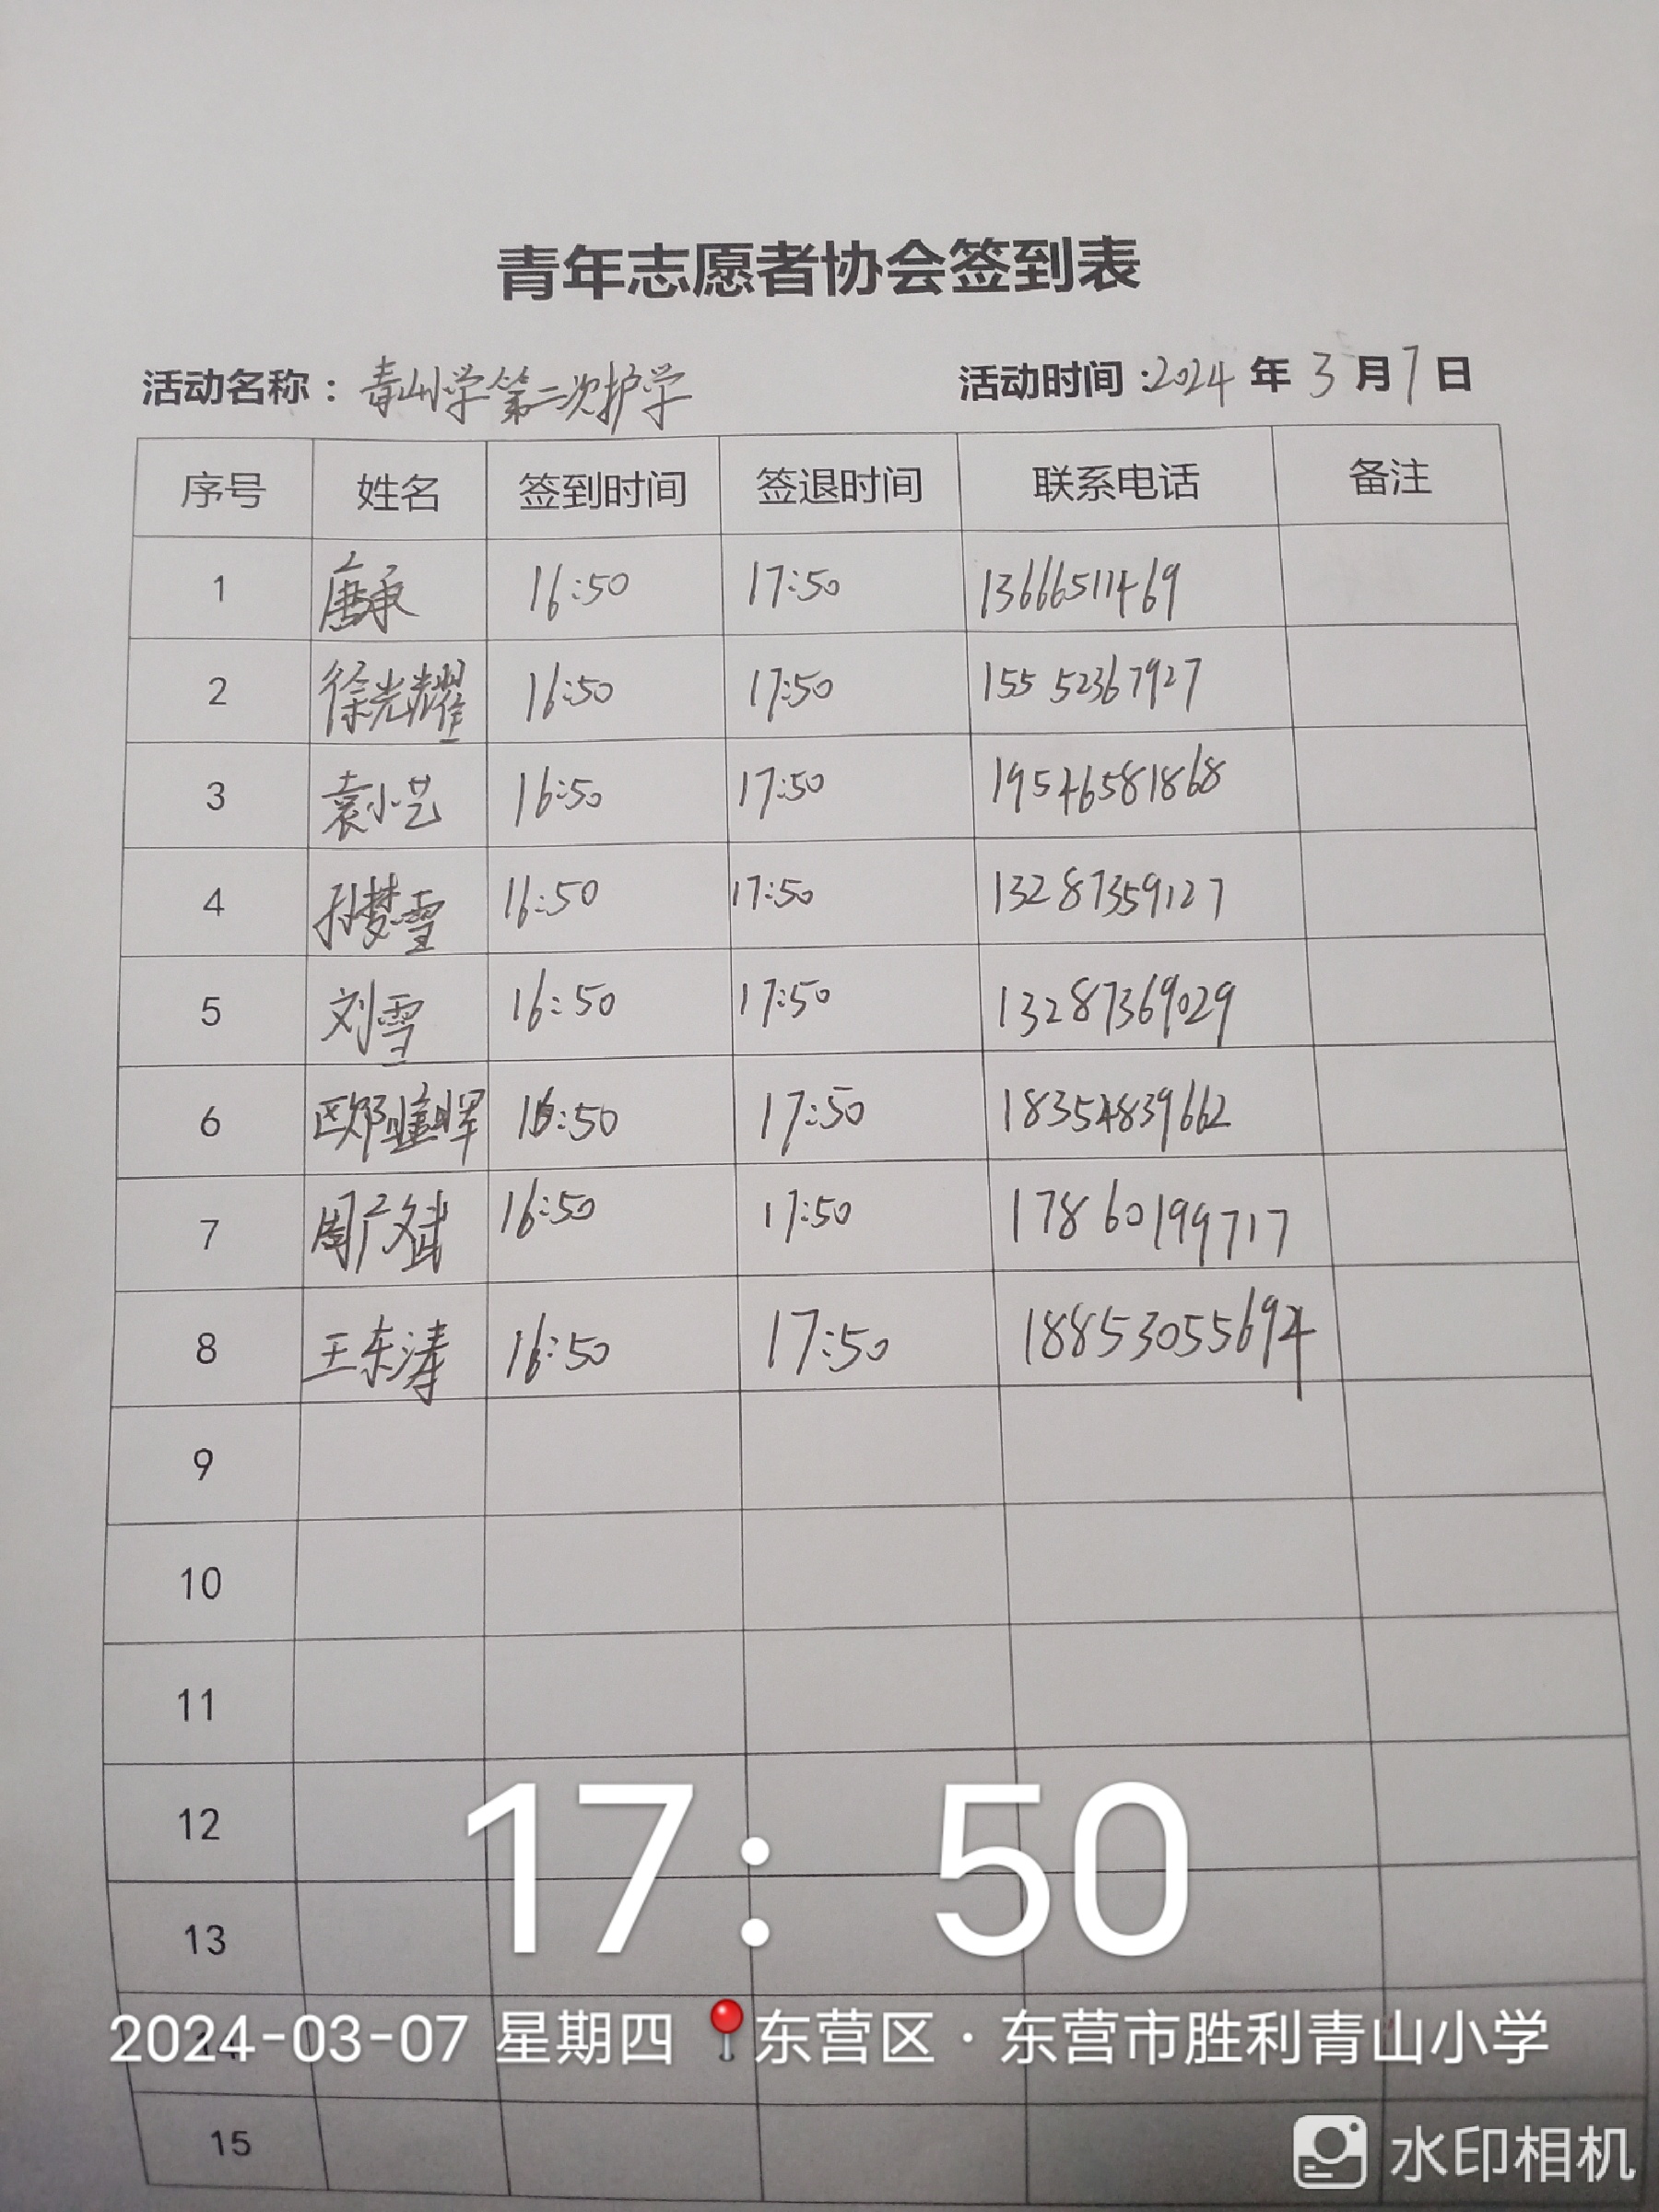 青年志愿者协会签到表
活动名称：青山小学第二次护学 活动时间：2024年3月7日
序号 姓名 签到时间 签退时间 联系电话 备注
1 唐承 16:50 17:50 13666511469
2 徐光耀 16:50 17:50 15552367927
3 袁小艺 16:50 17:50 19546581868
4 孙梦雪 16:50 17:50 13287359127
5 刘雪 16:50 17:50 13287369029
6 16:50 17:50 18354839662
7 周广斌 16:50 17:50 17860199717
8 王东涛 16:50 17:50 18853055694
9
10
11
12
13
14
15
17:50
2024-03-07 星期四 东营区·东营市胜利青山小学
水印相机